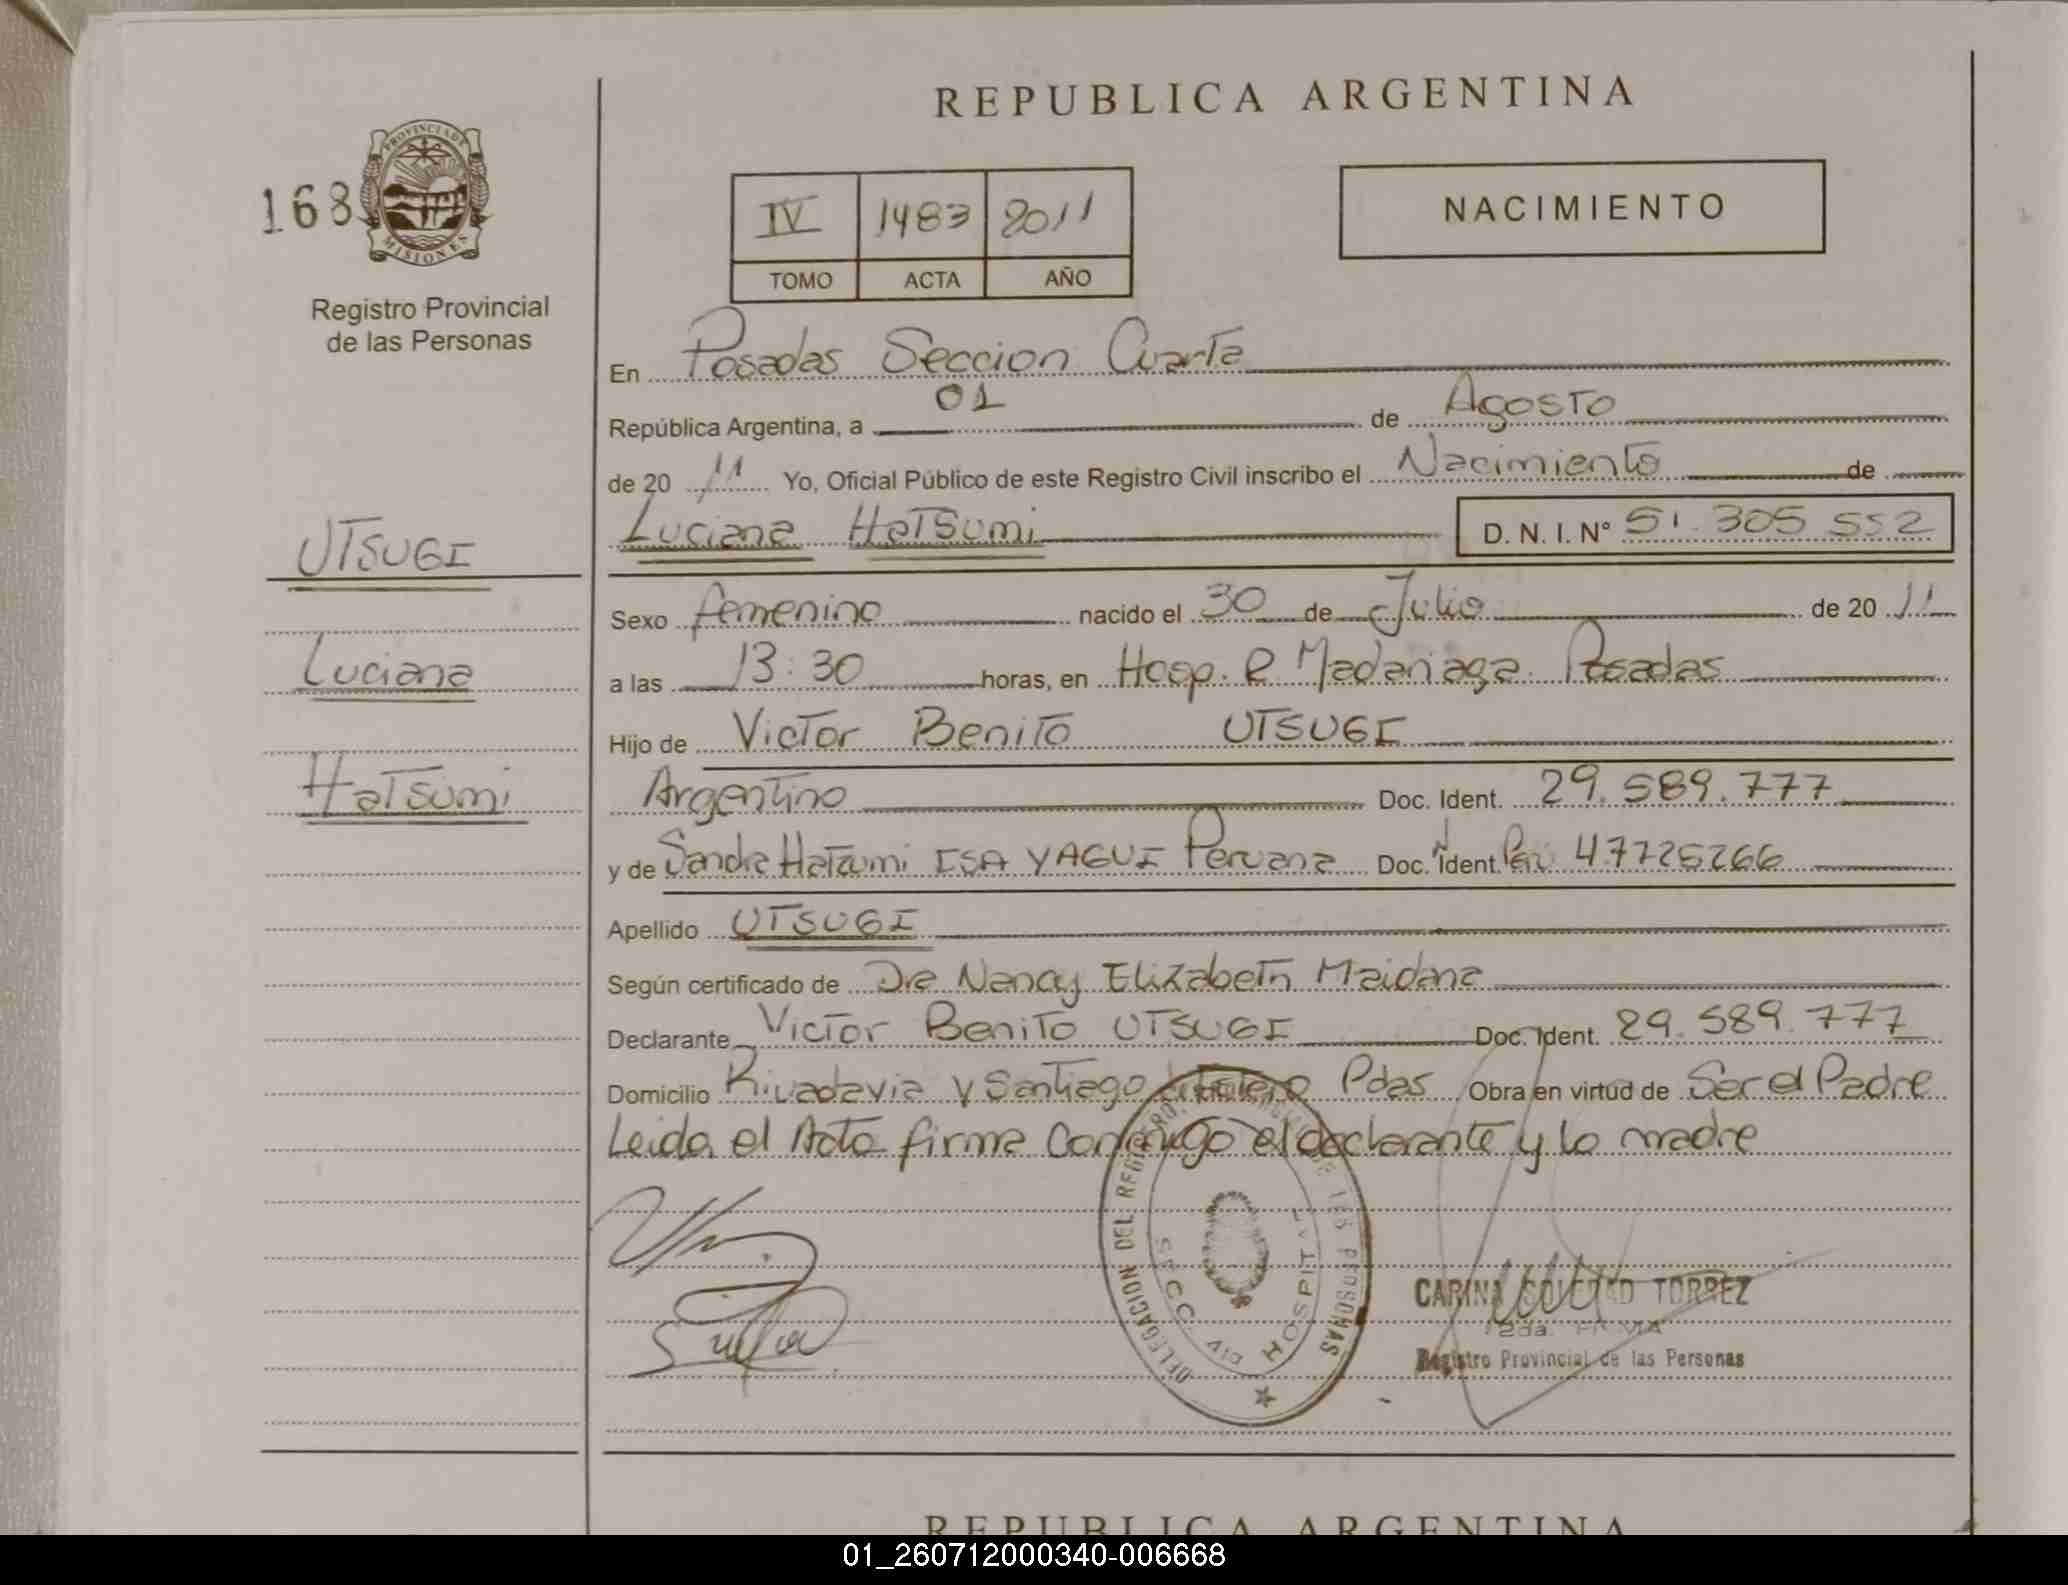 REPUBLICA ARGENTINA
168
PROVINCIA DE
MISIONES
Registro Provincial
de las Personas
IV 1483 2011
TOMO ACTA AÑO
NACIMIENTO
En Posadas Seccion Cuarta
República Argentina, a 01 de Agosto
de 20 11 Yo, Oficial Público de este Registro Civil inscribo el Nacimiento de
Luciana Hatsumi D. N. I. Nº 51.305 552
UTSUGI
Luciana
Hatsumi
Sexo femenino nacido el 30 de Julio de 20 11
a las 13:30 horas, en Hosp. R Madariaga. Posadas
Hijo de Victor Benito UTSUGI
Argentino Doc. Ident. 29.589.777
y de Sandra Hatzumi ISA YAGUI Peruana Doc. Ident. Perú 47725266
Apellido UTSUGI
Según certificado de Dra Nancy Elizabeth Maidana
Declarante Victor Benito UTSUGI Doc. Ident. 29.589.777
Domicilio Rivadavia y Santiago Pdas Obra en virtud de Ser el Padre
Leida el Acta firma conmigo el declarante y la madre
DELEGACION DEL REGISTRO DE LAS PERSONAS
SECC. HOSPITAL
CARINA SOLEDAD TORREZ
2da. FIRMA
Registro Provincial de las Personas
REPUBLICA ARGENTINA
01_260712000340-006668